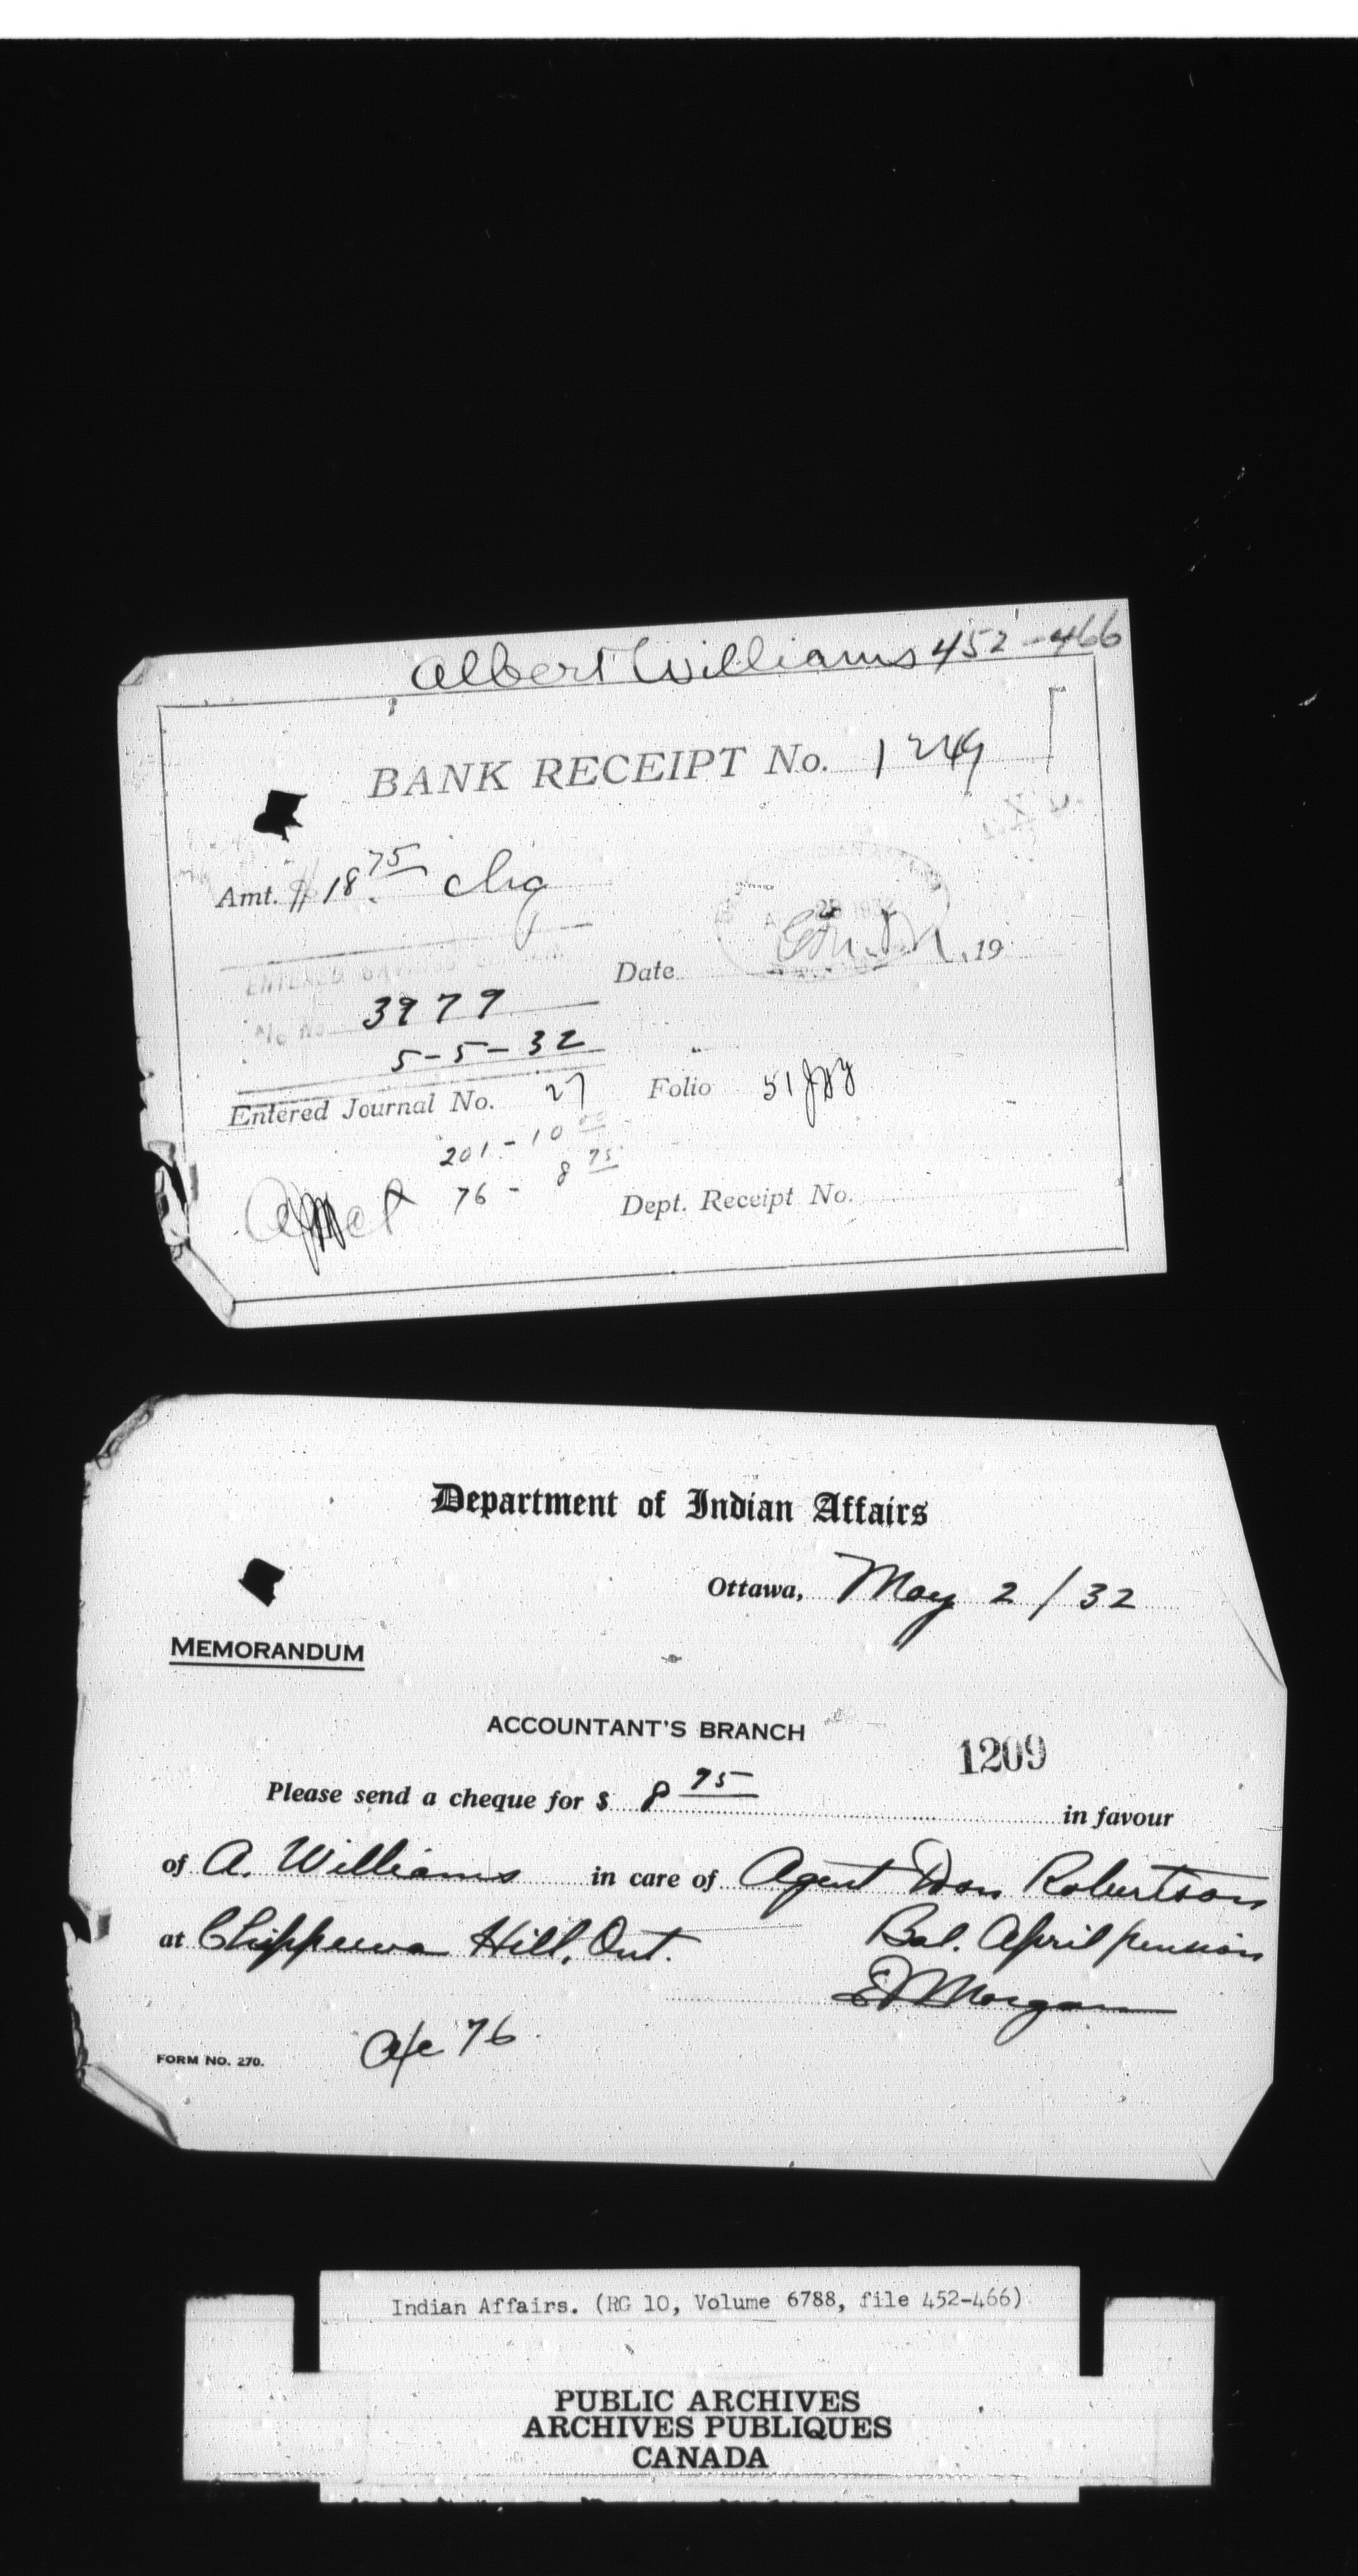 Albert Williams 452-466
BANK RECEIPT No. 1249
Amt. $18.75 chq
28 1932
Date , 19
ENTERED
No 3979
5-5-32
Entered Journal No. 27 Folio 51
201-10 00
76 - 8 75
Dept. Receipt No.
Department of Indian Affairs
Ottawa, May 2/32
MEMORANDUM
ACCOUNTANT'S BRANCH
1209
Please send a cheque for $ 8 75 in favour
of A. Williams in care of Agent Don Robertson
at Chippewa Hill, Ont. Bal. April pension
Morgan
FORM NO. 270. a/c 76
Indian Affairs. (RG 10, Volume 6788, file 452-466)
PUBLIC ARCHIVES
ARCHIVES PUBLIQUES
CANADA